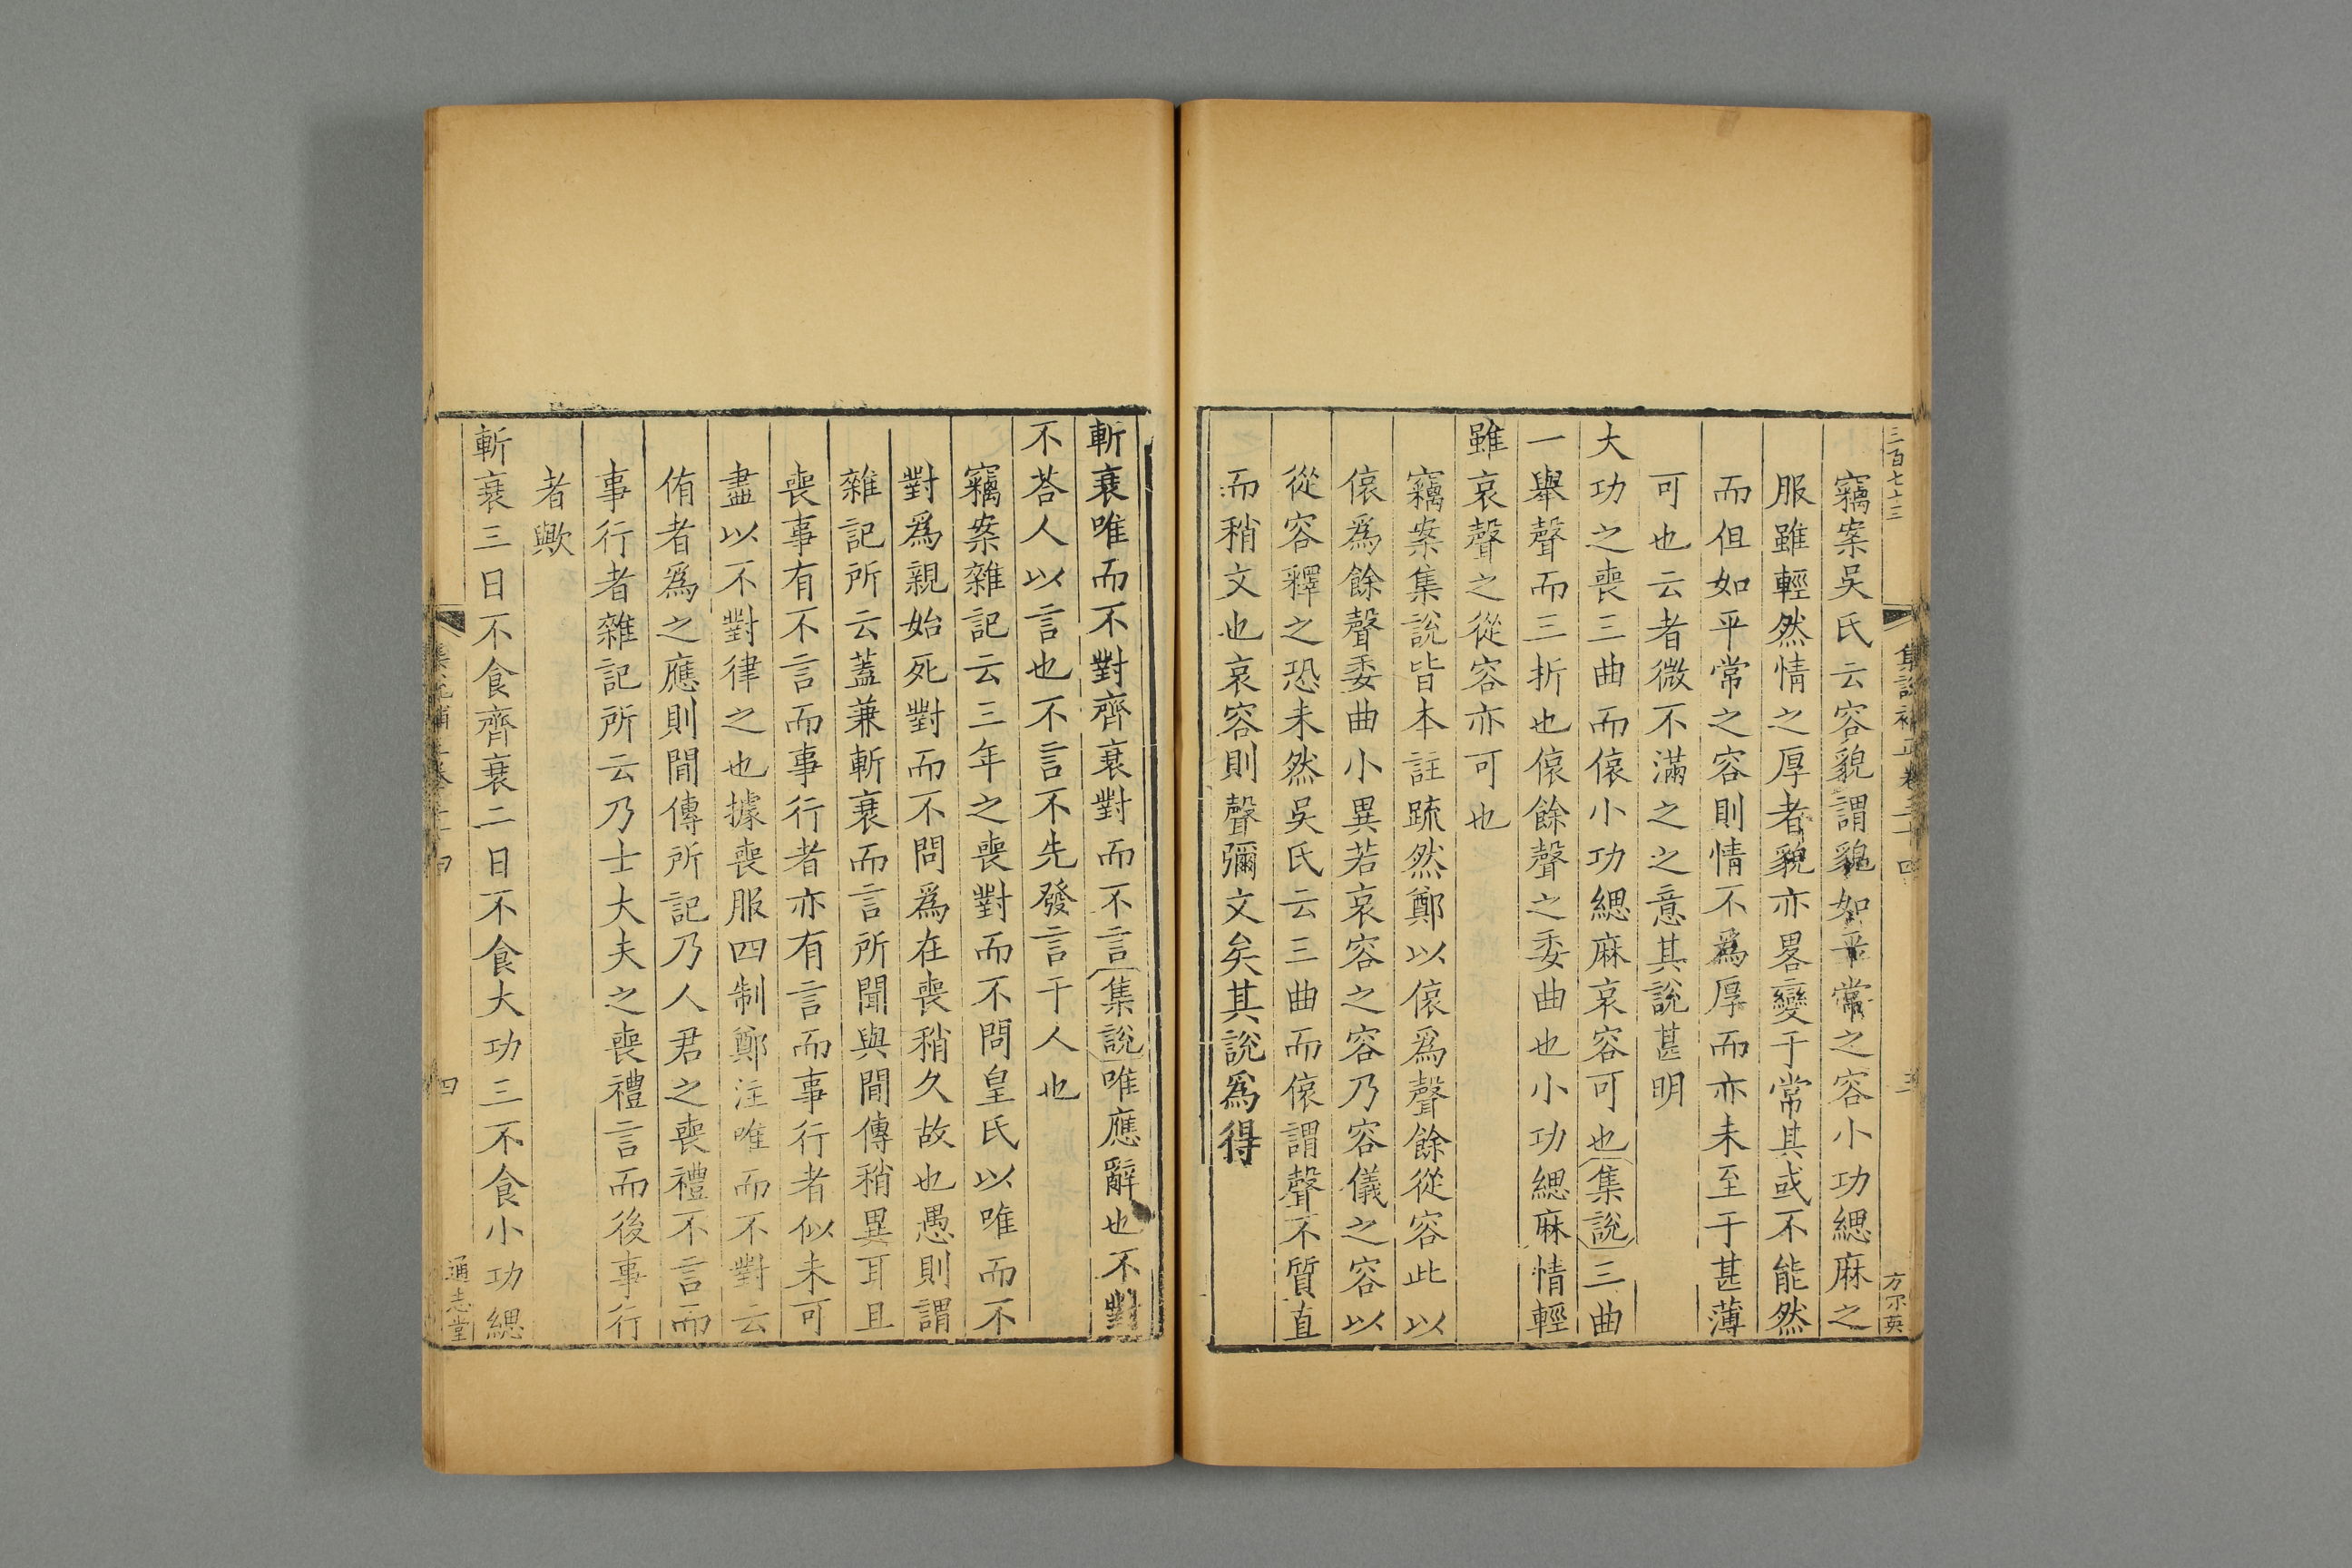 三百七十三
集說補正卷三十四
三
方不英
竊案吳氏云容貌謂貌如平常之容小功緦麻之
服雖輕然情之厚者貌亦畧變于常其或不能然
而但如平常之容則情不爲厚而亦未至于甚薄
可也云者微不滿之之意其說甚明
大功之喪三曲而偯小功緦麻哀容可也集說三曲
一舉聲而三折也偯餘聲之委曲也小功緦麻情輕
雖哀聲之從容亦可也
竊案集說皆本註疏然鄭以偯爲聲餘從容此以
偯爲餘聲委曲小異若哀容之容乃容儀之容以
從容釋之恐未然吳氏云三曲而偯謂聲不質直
而稍文也哀容則聲彌文矣其說爲得
斬衰唯而不對齊衰對而不言集說唯應辭也不對
不荅人以言也不言不先發言于人也
竊案雜記云三年之喪對而不問皇氏以唯而不
對爲親始死對而不問爲在喪稍久故也愚則謂
雜記所云蓋兼斬衰而言所聞與間傳稍異耳且
喪事有不言而事行者亦有言而事行者似未可
盡以不對律之也據喪服四制鄭注唯而不對云
侑者爲之應則間傳所記乃人君之喪禮不言而
事行者雜記所云乃士大夫之喪禮言而後事行
者歟
斬衰三日不食齊衰二日不食大功三不食小功緦
四
通志堂